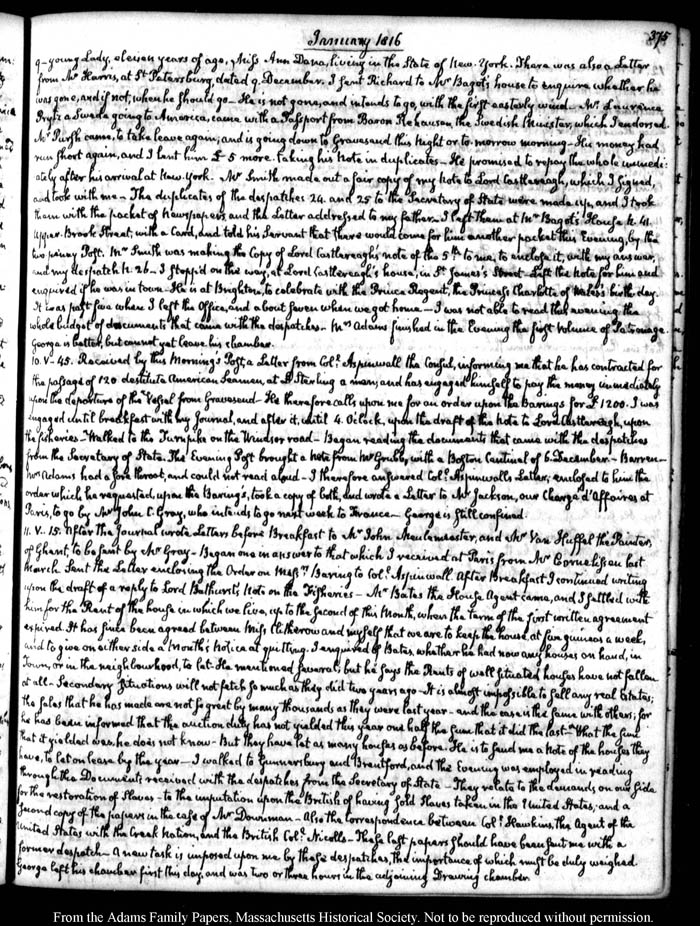 January 1816
375
a young Lady, eleven years of age, Miss Ann Dana, living in the State of New-York. There was also a Letter
from Mr Harris, at St Petersburg, dated 9. December. I sent Richard to Mr Bagot's house to enquire whether he
was gone, and if not, when he should go— He is not gone, and intends to go, with the first easterly wind— Mr Laurence
a Swede going to America, came with a Passport from Baron Rehausen, the Swedish Minister, which I endorsed.
Mr Pursh came, to take leave again; and is going down to Gravesend this Night or to-morrow morning— His money had
run short again, and I lent him £5 more. taking his Note in duplicates— He promised to repay the whole immedi-
ately after his arrival at New-York. Mr Smith made out a fair copy of my Note to Lord Castlereagh, which I signed,
and took with me— The duplicates of the despatches 24. and 25 to the Secretary of State were made up, and I took
them with the packet of Newspapers, and the Letter addressed to my father— I left them at Mr Bagot's House N. 41.
Upper Brook Street, with a Card, and told his Servant that there would come for him another packet this Evening, by the
two penny Post. Mr Smith was making the Copy of Lord Castlereagh's note of the 5th to me, to enclose it, with my answer,
and my despatch N. 26— I stopp'd on the way, at Lord Castlereagh's house, in St James's Street— Left the Note for him and
enquired if he was in town— He is at Brighton, to celebrate with the Prince Regent, the Princess Charlotte of Wales's birth-day.
It was past five when I left the Office, and about seven when we got home— I was not able to read this evening, the
whole budget of documents that came with the despatches— Mrs Adams finished in the Evening the first Volume of Patronage.
George is better, but cannot yet leave his chamber.
10. V-45. Received by this Morning's Post, a Letter from Coll. Aspinwall the Consul, informing me that he has contracted for
the passage of 120 destitute American Seamen, at £ Sterling a man, and has engaged himself to pay the money immediately
upon the departure of the Vessel from Gravesend— He therefore calls upon me for an order upon the Barings for £1200. I was
engaged until breakfast with my Journal, and after it, until 4. O'clock, upon the draft of the Note to Lord Castlereagh, upon
the fisheries— Walked to the Turnpike on the Windsor road— Began reading the documents that came with the despatches
from the Secretary of State. The Evening Post brought a Note from Mr Grubb, with a Boston Centinel of 6. December— Barren—
Mrs Adams had a sore throat, and could not read aloud— I therefore answered Coll. Aspinwall's Letter, enclosed to him the
order which he requested, upon the Baring's, took a copy of both, and wrote a Letter to Mr Jackson, our Chargé d'Affaires at
Paris, to go by Mr John C. Gray, who intends to go next week to France— George is still confined.
11. V-15. After the Journal wrote Letters before Breakfast to Mr John Meulemeester, and Mr Van Huffel the Painter,
of Ghent, to be sent by Mr Gray— Began one in answer to that which I received at Paris from Mr Cornelissen last
March. Sent the Letter enclosing the Order on Messrs Baring to Coll. Aspinwall. After Breakfast I continued writing
upon the draft of a reply to Lord Bathurst's Note on the Fisheries— Mr Bates the House Agent came, and I settled with
him for the Rent of the house in which we live, up to the second of this Month, when the term of the first written agreement
expired. It has since been agreed between Miss Clitherow and myself that we are to keep the house, at five guineas a week,
and to give on either side a Month's Notice at quitting. I enquired of Bates, whether he had now any houses on hand, in
Town, or in the neighbourhood, to let— He mentioned several; but he says the Rents of well situated houses have not fallen
at all— Secondary Situations will not fetch so much as they did two years ago— It is almost impossible to sell any real Estates;
the sales that he has made are not so great by many thousands as they were last year— and the case is the same with others; for
he has been informed that the auction duty has not yielded this year one half the sum that it did the last— What the sum
that it yielded was, he does not know— But they have let as many houses as before. He is to send me a Note of the houses they
have, to let on lease by the year— I walked to Gunnersbury and Brentford, and the Evening was employed in reading
through the Documents received with the despatches from the Secretary of State— They relate to the demands on our side
for the restoration of Slaves— to the imputation upon the British of having sold Slaves taken in the United States; and a
second copy of the papers in the case of Mr Downman— Also the correspondence between Coll. Hawkins, the Agent of the
United States with the Creek Nation, and the British Coll. Nicolls— These last papers should have been sent me with a
former despatch— A new task is imposed upon me by these despatches, the importance of which must be duly weighed
George left his chamber first this day, and was two or three hours in the adjoining Drawing chamber.
From the Adams Family Papers, Massachusetts Historical Society. Not to be reproduced without permission.